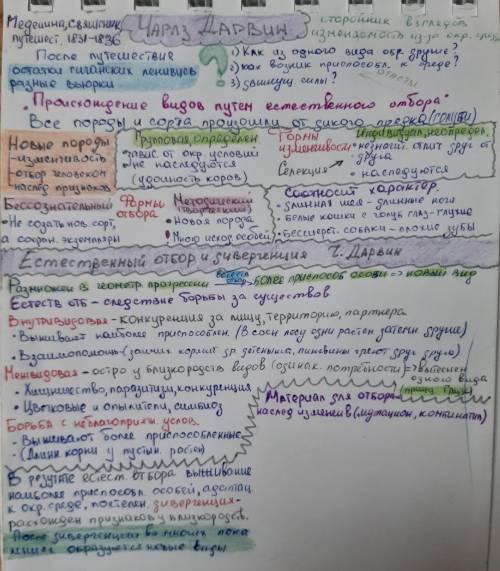 Медецина, священник,
путешест. 1831-1836
ЧАРЛЗ ДАРВИН
сторонник взглядов
изменяемость из за окр. среды
После путешествия
остатки гиганских ленивцев
разные вьюрки
?
1) Как из одного вида обр. другие?
2) как возник приспособл. к среде?
3) движущ. силы?
ответы
"Происхождение видов путем естественного отбора"
Все породы и сорта произошли от дикого предка
Новые породы
-изменчивость
-отбор человеком
наслед признаков
Групповая, определен.
завис от окр. условий
не наследуются
(удойность коров)
Формы
изменчивости
Селекция
Индивидуал, неопредел.
незначит. отлич друг от
друга
наследуются
Бессознательный
• Не создать нов. сорт,
а сохран. экземпляры
Формы
отбора
Методический
(творческий)
• Новая порода
! Много исход. особей
Соотносит характер.
- длинная шея - длинные ноги
- белые кошки с голуб глаз - глухие
- бесшерст. собаки - плохие зубы
Естественный отбор и дивергенция Ч. Дарвин
Размножен в геометр прогрессии
естеств
отбор
более приспособ особи => новый вид
Естеств отб - следствие борьбы за существов
Внутривидовая - конкуренция за пищу, территорию, партнера
• Выживают наиболее приспособлен. (В сосн лесу одни растен затеги другие)
• Взаимопомощь - (зайчих кормит др детеныша, пингвины греют друг друга)
Межвидовая - остро у близкородств видов (одинак. потребности) => вытеснен
одного вида
• Хищничество, паразитизм, конкуренция
• Цветковые и опылители, симбиоз
Борьба с неблагоприятн. услов.
- Выживают более приспособленные
- (Длинн корни у пустын. растен)
Материал для отбора-
наслед изменчив (мутацион, комбинатив)
В результе естест. отбора выживание
наиболее приспособл. особей, адаптац.
к окр. среде, постепен. дивергенция-
расхожден признаков у близкородств.
После дивергенции во многих поко
лениях образуются новые виды